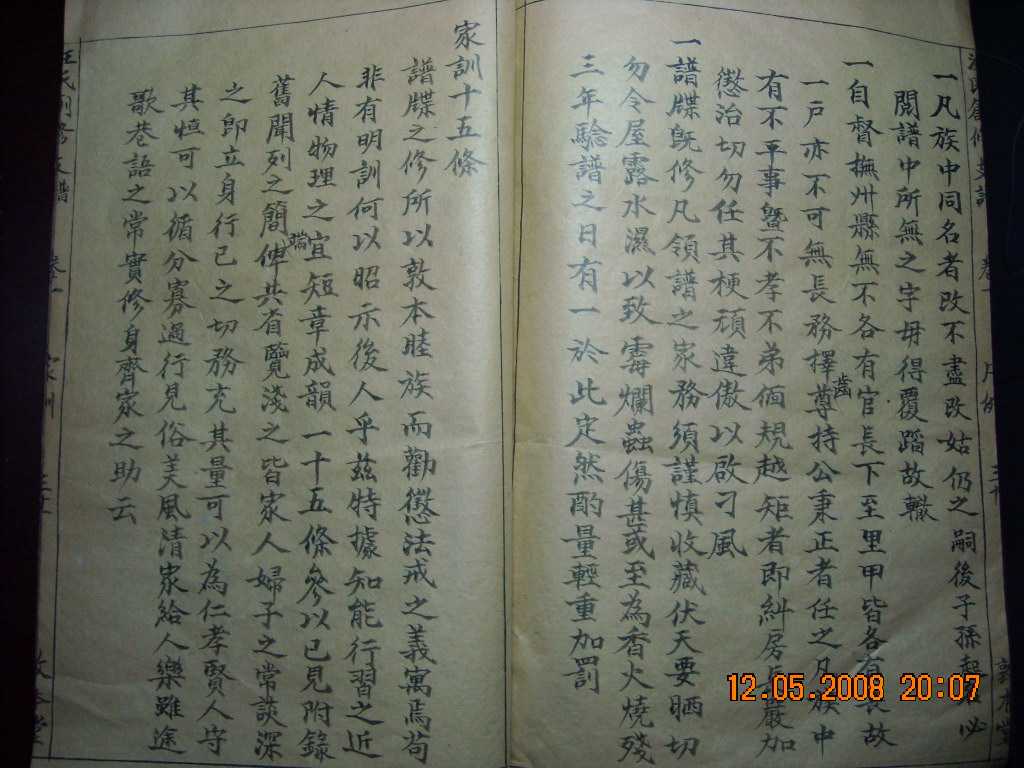 一凡族中同名者改不盡改姑仍之嗣後子孫起名必
閱譜中所無之字毋得覆蹈故轍
一自督撫州縣無不各有官長下至里甲皆各有長故
一戶亦不可無長務擇尊齒持公秉正者任之凡族中
有不平事曁不孝不弟偭規越矩者即糾房長嚴加
懲治切勿任其梗頑違傲以啟刁風
一譜牒旣修凡領譜之家務須謹慎收藏伏天要晒切
勿令屋露水濕以致霉爛蟲傷甚或至為香火燒殘
三年驗譜之日有一於此定然酌量輕重加罰
家訓十五條
譜牒之修所以敦本睦族而勸懲法戒之義寓焉苟
非有明訓何以昭示後人乎茲特據知能行習之近
人情物理之宜短章成韻一十五條參以已見附錄
舊聞列之簡端俾共省覽淺之皆家人婦子之常談深
之卽立身行已之切務充其量可以為仁孝賢人守
其恒可以循分寡過行見俗美風清家給人樂雖途
歌巷語之常實修身齊家之助云
卷一 家訓
敦本堂
12.05.2008 20:07